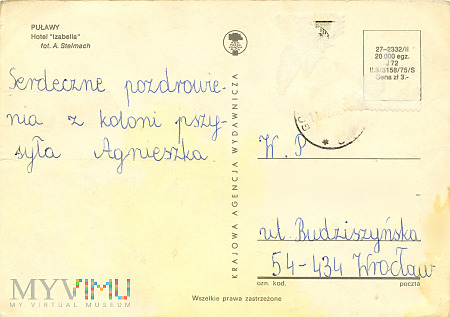 PUŁAWY
Hotel "Izabella"
fot. A. Stelmach
Serdeczne pozdrowie-
nia z koloni pszy-
syła Agnieszka
KRAJOWA AGENCJA WYDAWNICZA
27-2332/II
20 000 egz.
J 72
Cena zł 3.-
W. P
ul. Budziszyńska
54-434 Wrocław
ozn. kod.
poczta
Wszelkie prawa zastrzeżone
MYVIMU
MY VIRTUAL MUSEUM